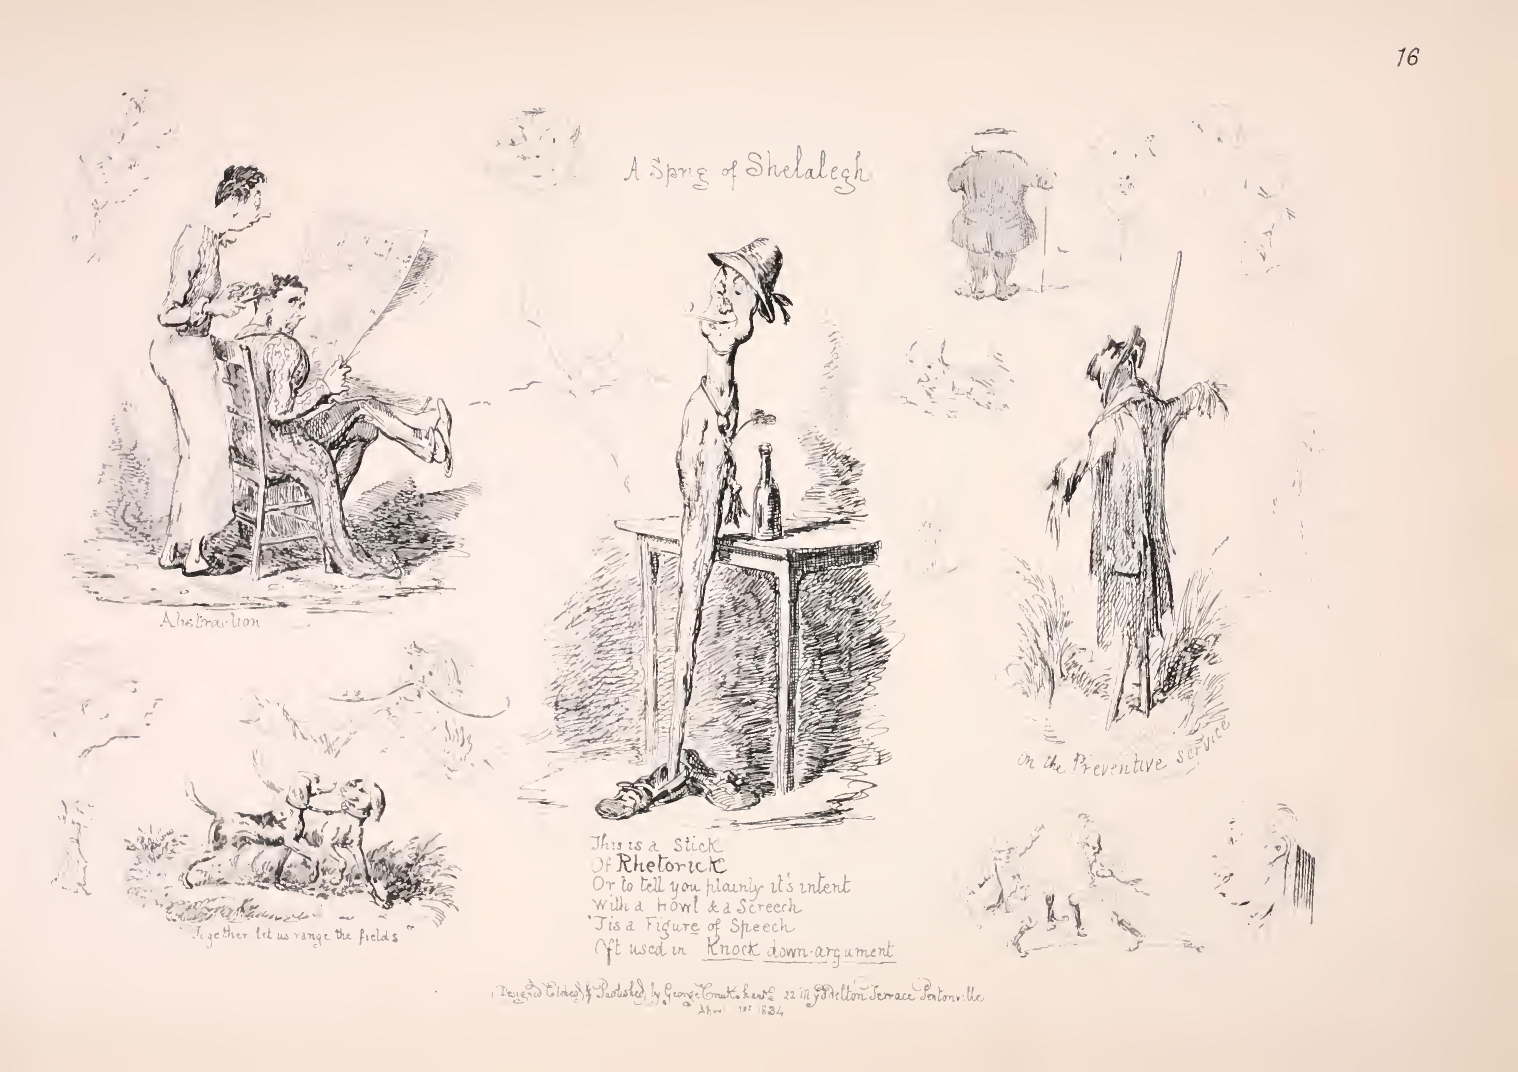 16
A Sprig of Shelalegh
Abstraction
On the Preventive Service
"Together let us range the fields"
This is a Stick
Of Rhetorick
Or to tell you plainly it's intent
With a Howl & a Screech
'Tis a Figure of Speech
Oft used in Knock down-argument
Designed Etched & Published by George Cruikshank 22 Myddelton Terrace Pentonville
1834